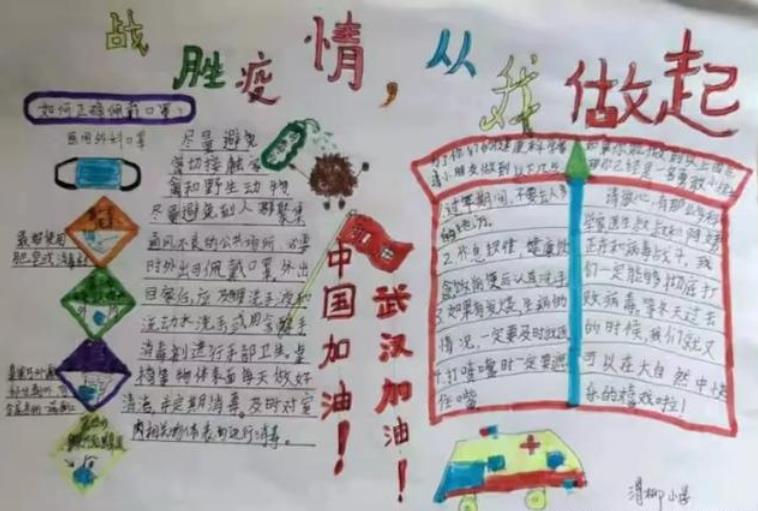 战胜疫情，从我做起
如何正确佩戴口罩：
医用外科口罩
尽量避免
密切接触家
禽和野生动物
尽量避免到人群聚集
通风不良的公共场所，必要
时外出要佩戴口罩，外出
回家后，应及时洗手液和
流动水洗手或用含醇手
消毒剂进行手部卫生。桌
椅等物体表面每天做好
清洁，并定期消毒。及时对室
内相关物体表面进行消毒。
中国加油！
武汉加油！
为了你们的健康
请小朋友做到以下几点
过寒期间，不要去人多
的地方。
2.作息规律，健康饮
食饭前便后认真洗手
3.如果有发烧生病的
情况，一定要及时就医
4.打喷嚏时一定要遮
住嘴
如果你能做到以上四点
那你已经是一名勇敢小
请放心，有那么多科
学家医生叔叔和阿姨
正在和病毒战斗。我
们一定能够彻底打
败病毒，等冬天过去
的时候，我们就又
可以在大自然中快
乐的嬉戏啦！
小学